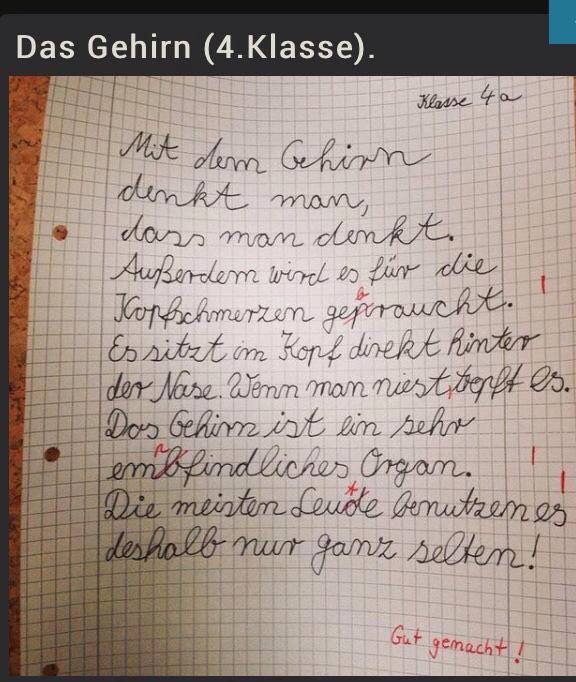 Das Gehirn (4.Klasse).
Klasse 4a
Mit dem Gehirn
denkt man,
dass man denkt.
Außerdem wird es für die
Kopfschmerzen gepraucht.
b
Es sitzt im Kopf direkt hinter
der Nase. Wenn man niest, tropft es.
Das Gehirn ist ein sehr
embfindliches Organ.
p
Die meisten Leude benutzen es
t
deshalb nur ganz selten!
Gut gemacht!